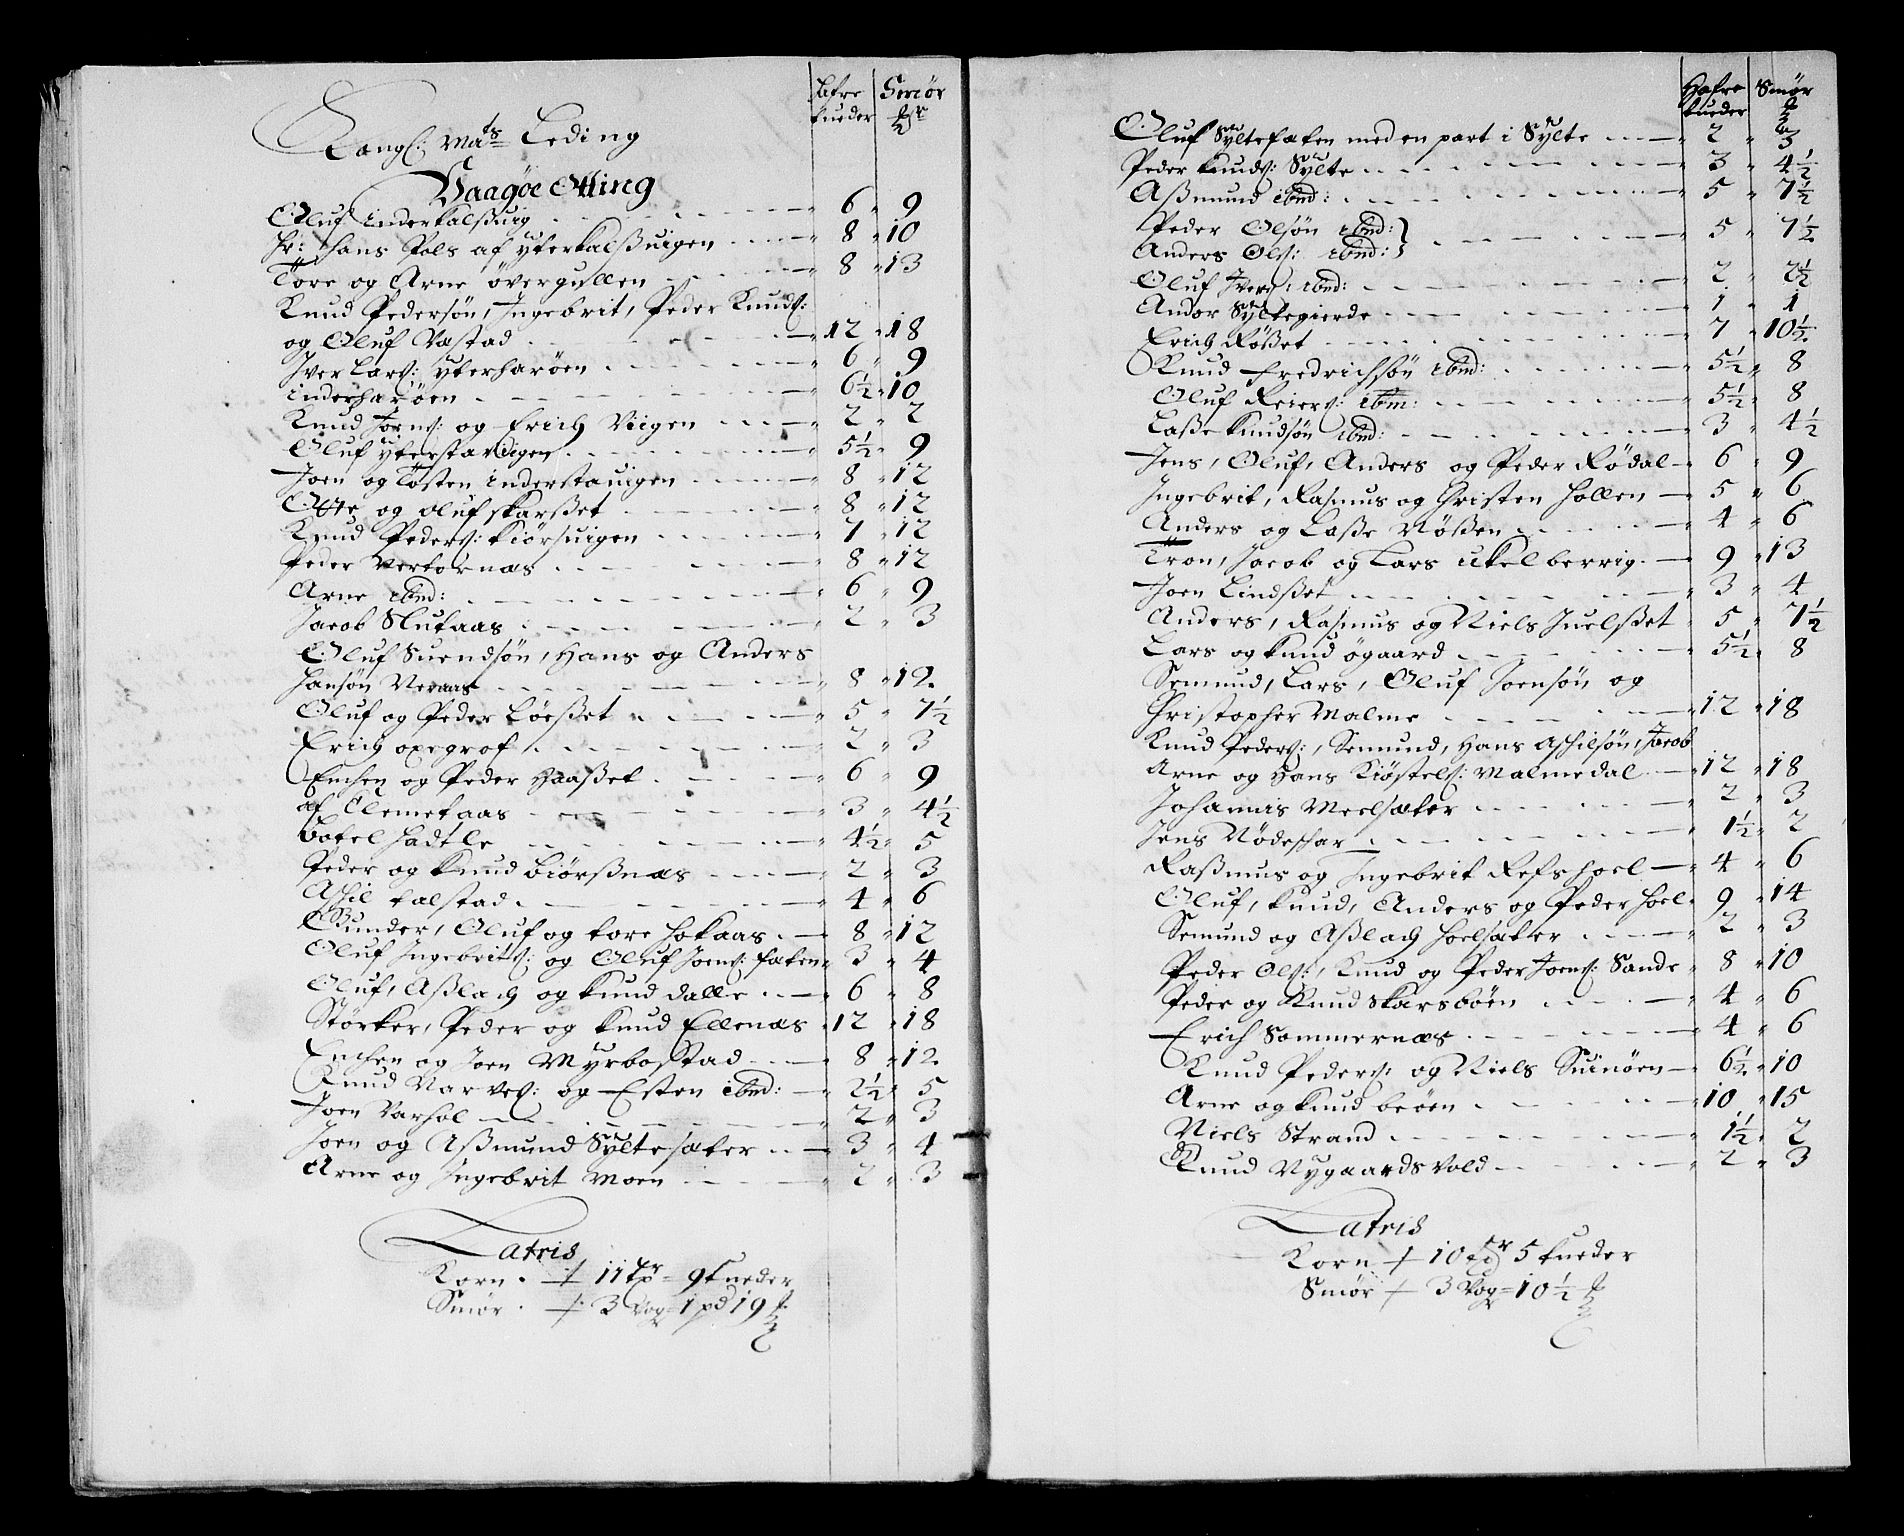 Hafre Smör
kueder ℔r
Kongl: Mats Leding
Vaagöe Otting
Oluf inderkalßuig 6 9
Hr: Hans Pols af yterkalßuigen 8 10
Tore og Arne övergullen 8 13
Knud Pedersön, Ingebrit, Peder Knuds:
og Oluf Vastad 12 18
Iver Lars: yterharöen 6 9
inderharöen 6½ 10
Knud Joens: og Erich Viigen 2 2
Oluf yterstavigen 5½ 9
Joen og Tosten inderstauigen 8 12
Otte og oluf skarßet 8 12
Knud Peders: kiörsuigen 7 12
Peder Vertornæs 8 12
Arne ibm: 6 9
Jacob Slutaas 2 3
Oluf Suendsön, Hans og Anders
Hansön Neraas 8 12
Oluf og Peder Löeßet 5 7½
Erich oxegrof 2 3
Enchen og Peder Haaßet 6 9
af Clemetaas 3 4½
Botel Hadtle 4½ 5
Peder og Knud Biörßnæs 2 3
Aschil talstad 4 6
Gunder, Oluf og tore Hokaas 8 12
Oluf Ingebrits: og Oluf Joens: faten 3 4
Oluf, Aßlach og knud dalle 6 8
Störker, Peder og knud Ellenæs 12 18
Enchen og Joen Myrbostad 8 12
Knud Narves: og Esten ibm: 2½ 5
Joen Varhol 2 3
Joen og Aßmund Syltesæter 3 4
Arne og Ingebrit Moen 2 3
Latris
Korn 11 tpr 9 kueder
Smör 3 Vog 1 pd 19 ℔
Hafre Smör
kueder ℔
Oluf Syltefaten med en part i Sylte 2 3
Peder knuds: Sylte 3 4½
Aßmund ibm: 5 7½
Peder Olsön ibm:
Anders Ols: ibm: 5 7½
Oluf Ivers: ibm: 2 2½
Andor Syltegierde 1 1
Erich Rößet 7 10½
Knud Fredrichsön ibm: 5½ 8
Oluf Reiers: ibm: 5½ 8
Laße knudsön ibm: 3 4½
Jens, Oluf, Anders og Peder Rödal 6 9
Ingebrit, Rasmus og Christen Hollen 5 6
Anders og Laße Nößen 4 6
Tron, Jacob og Lars ukelberrig 9 13
Joen Lindßet 3 4
Anders, Rasmus og Niels Juelßet 5 7½
Lars og knud ögaard 5½ 8
Semund, Lars, Oluf Joensön og
Christopher Malme 12 18
Knud Peders:, Semund, Hans Aschilsön, Jacob
Arne og Hans Kiöstels: Malmedal 12 18
Johannis Meelsæter 2 3
Jens Nödeschar 1½ 2
Raßmus og Ingebrit Refshoel 4 6
Oluf, knud, Anders og Peder Hoel 9 14
Semund og Aßlach Hoelsæter 2 3
Peder Ols:, Knud og Peder Joens: Sande 8 10
Peder og Knud skarsböen 4 6
Erich Sommernæs 4 6
Knud Peders: og Niels Suinöen 6½ 10
Arne og knud böen 10 15
Niels Strand 1½ 2
Knud Nygaardsvold 2 3
Latris
Korn 10 5 kueder
Smör 3 Vog 10½ ℔